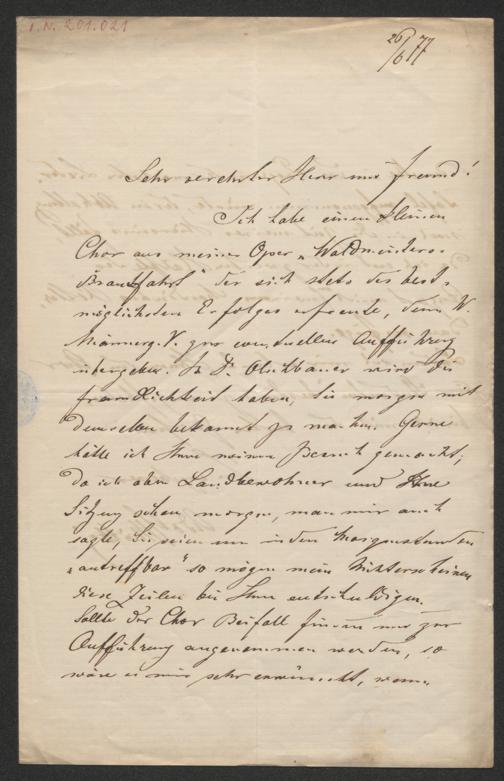 I.N. 201.021
26/6 77
Sehr verehrter Herr und Freund!
Ich habe einen kleinen
Chor aus meiner Oper „Waldmeisters
Brautfahrt" der sich stets des best-
möglichsten Erfolges erfreute, dem W.
Männerg.V. zur eventuellen Aufführung
übergeben. Hr Dr Olschbauer wird die
Freundlichkeit haben, Sie morgen mit
demselben bekannt zu machen. Gerne
hätte ich Ihnen meinen Besuch gemacht;
da ich aber Landbewohner und Ihre
Sitzung schon morgen, man mir auch
sagte, Sie seien nur in den Morgenstunden
„antreffbar" so mögen mein Nichterscheinen
diese Zeilen bei Ihnen entschuldigen.
Sollte der Chor Beifall finden und zur
Aufführung angenommen werden, so
wäre es mir sehr erwünscht, wenn